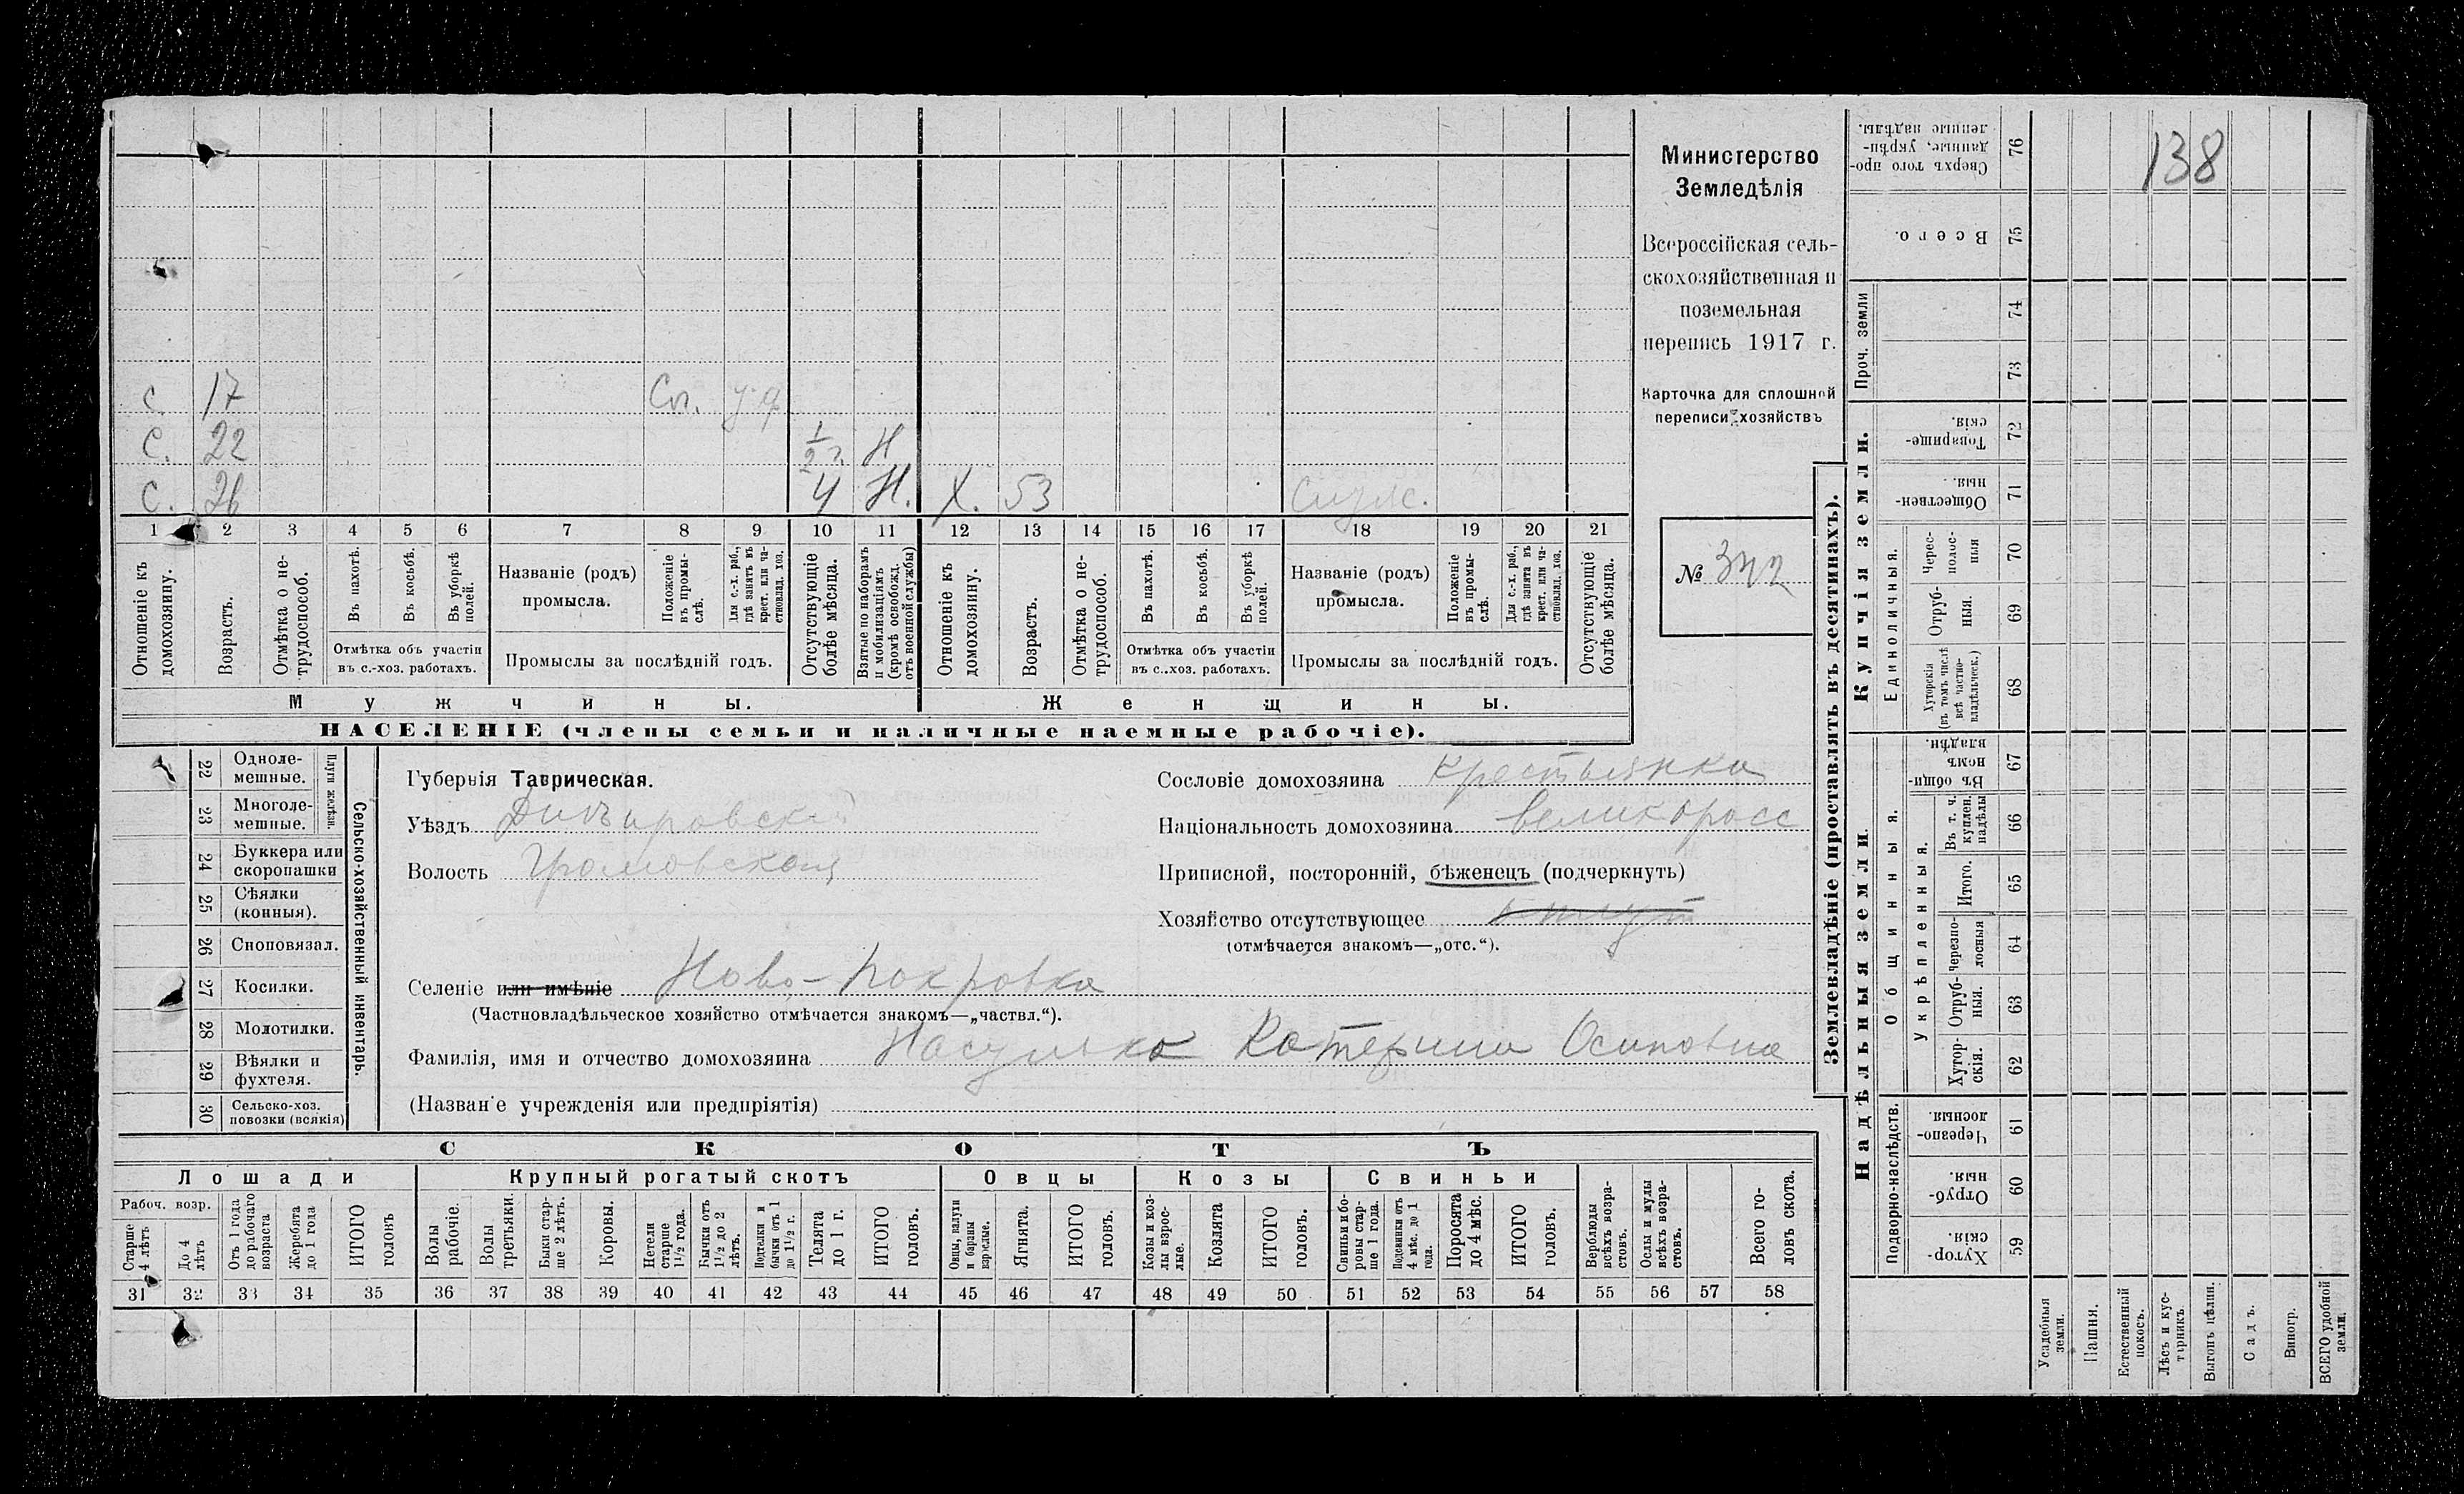 138
Министерство
Земледѣлія
Всероссійская сель-
скохозяйственная и
поземельная
перепись 1917 г.
Карточка для сплошной
переписи хозяйствъ
№ 342
с. 17 Сл.
С. 22 1/2 г. Н
С. 26 4 Н. Х. 53
1 2 3 4 5 6 7 8 9 10 11 12 13 14 15 16 17 18 19 20 21
Отношеніе къ домохозяину.
Возрастъ.
Отмѣтка о не-трудоспособ.
Въ пахотѣ.
Въ косьбѣ.
Въ уборкѣ полей.
Отмѣтка объ участіи
въ с.-хоз. работахъ.
Названіе (родъ)
промысла.
Положеніе въ промы-слѣ.
Для с.-х. раб., гдѣ занятъ въ крест. или ча-стновлад. хоз.
Промыслы за послѣдній годъ.
Отсутствующіе болѣе мѣсяца.
Взятые по наборамъ и мобилизаціямъ (кромѣ освобожд. отъ военной службы)
Отношеніе къ домохозяину.
Возрастъ.
Отмѣтка о не-трудоспособ.
Въ пахотѣ.
Въ косьбѣ.
Въ уборкѣ полей.
Отмѣтка объ участіи
въ с..хоз. работахъ.
Названіе (родъ)
промысла.
Положеніе въ промы-слѣ.
Для с.-х. раб., гдѣ занята въ крест. или ча-стновлад. хоз.
Промыслы за послѣдній годъ.
Отсутствующіе болѣе мѣсяца.
Мужчины.
Женщины.
НАСЕЛЕНІЕ (члены семьи и наличные наемные рабочіе).
22 Одноле-мешные.
23 Многоле-мешные.
Плуги желѣзн.
24 Буккера или скоропашки
25 Сѣялки (конныя).
26 Сноповязал.
27 Косилки.
28 Молотилки.
29 Вѣялки и фухтеля.
30 Сельско-хоз. повозки (всякія)
Сельско-хозяйственный инвентарь.
Губернія Таврическая.
Уѣздъ Днѣпровскій
Волость Громовской
Селеніе или имѣніе Ново-Покровка
(Частновладѣльческое хозяйство отмѣчается знакомъ—„частвл.“).
Фамилія, имя и отчество домохозяина Катерина Осиповна
(Назван'е учрежденія или предпріятія)
Сословіе домохозяина крестьянка
Національность домохозяина великоросс
Приписной, посторонній, бѣженецъ (подчеркнуть)
Хозяйство отсутствующее
(отмѣчается знакомъ—„отс.“).
СКОТЪ
Лошади
Рабоч. возр.
Старше 4 лѣтъ
До 4 лѣтъ
Отъ 1 года до рабочаго возраста
Жеребята до 1 года
ИТОГО головъ
Крупный рогатый скотъ
Волы рабочіе.
Волы третьяки.
Быки стар-ше 2 лѣтъ.
Коровы.
Нетели старше 1½ года.
Бычки отъ 1½ до 2 лѣтъ.
Подтелки и бычки отъ 1 до 1½ г.
Телята до 1 г.
ИТОГО головъ.
Овцы
Овцы, валухи и бараны взрослые.
Ягнята.
ИТОГО головъ.
Козы
Козы и коз-лы взрос-лые.
Козлята
ИТОГО головъ.
Свиньи
Свиньи и бо-ровы стар-ше 1 года.
Подсвинки отъ 4 мѣс. до 1 года.
Поросята до 4 мѣс.
ИТОГО головъ.
Верблюды всѣхъ возра-стовъ.
Ослы и мулы всѣхъ возра-стовъ.
Всего го-ловъ скота.
31 32 33 34 35 36 37 38 39 40 41 42 43 44 45 46 47 48 49 50 51 52 53 54 55 56 57 58
Землевладѣніе (проставлять въ десятинахъ).
Надѣльныя земли.
Подворно-наслѣдств.
Хутор-скія. 59
Отруб-ныя. 60
Черезпо-лосныя. 61
Общинныя.
Укрѣпленныя.
Хутор-скія. 62
Отруб-ныя. 63
Черезпо-лосныя 64
Итого. 65
Въ т. ч. куплен. надѣлы 66
Въ общин-номъ владѣн. 67
Купчія земли.
Единоличныя.
Хуторскія (въ томъ числѣ всѣ частно-владѣльческ.) 68
Отруб-ныя. 69
Черес-полос-ныя 70
Обществен-ныя. 71
Товарище-скія. 72
Проч. земли
73
74
Всего. 75
Сверхъ того про-данные, укрѣп-ленные надѣлы. 76
Усадебныя земли.
Пашня.
Естественный покосъ.
Лѣсъ и кус-тарникъ.
Выгонъ цѣлин.
Садъ.
Виногр.
ВСЕГО удобной земли.